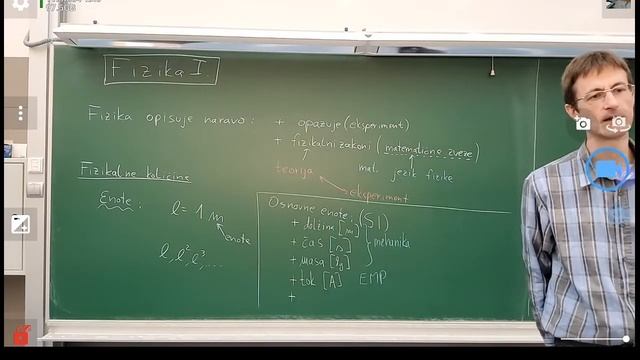 Fizika I
Fizika opisuje naravo: + opazuje (eksperiment)
+ fizikalni zakoni (matematične zveze)
teorija
mat. jezik fizike
eksperiment
Fizikalne količine
Enote: l = 1 m
enote
l, l², l³, ....
Osnovne enote: (SI)
+ dolžina [m]
+ čas [s]
+ masa [kg]
mehanika
+ tok [A] EMP
+